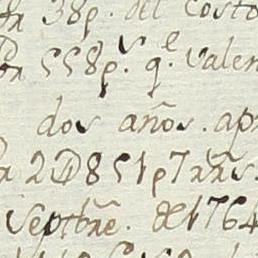 38p. del costo
558p.s q.e valen
dos años. apr
2@851p7rrs.
Septbrẽ. de 1764